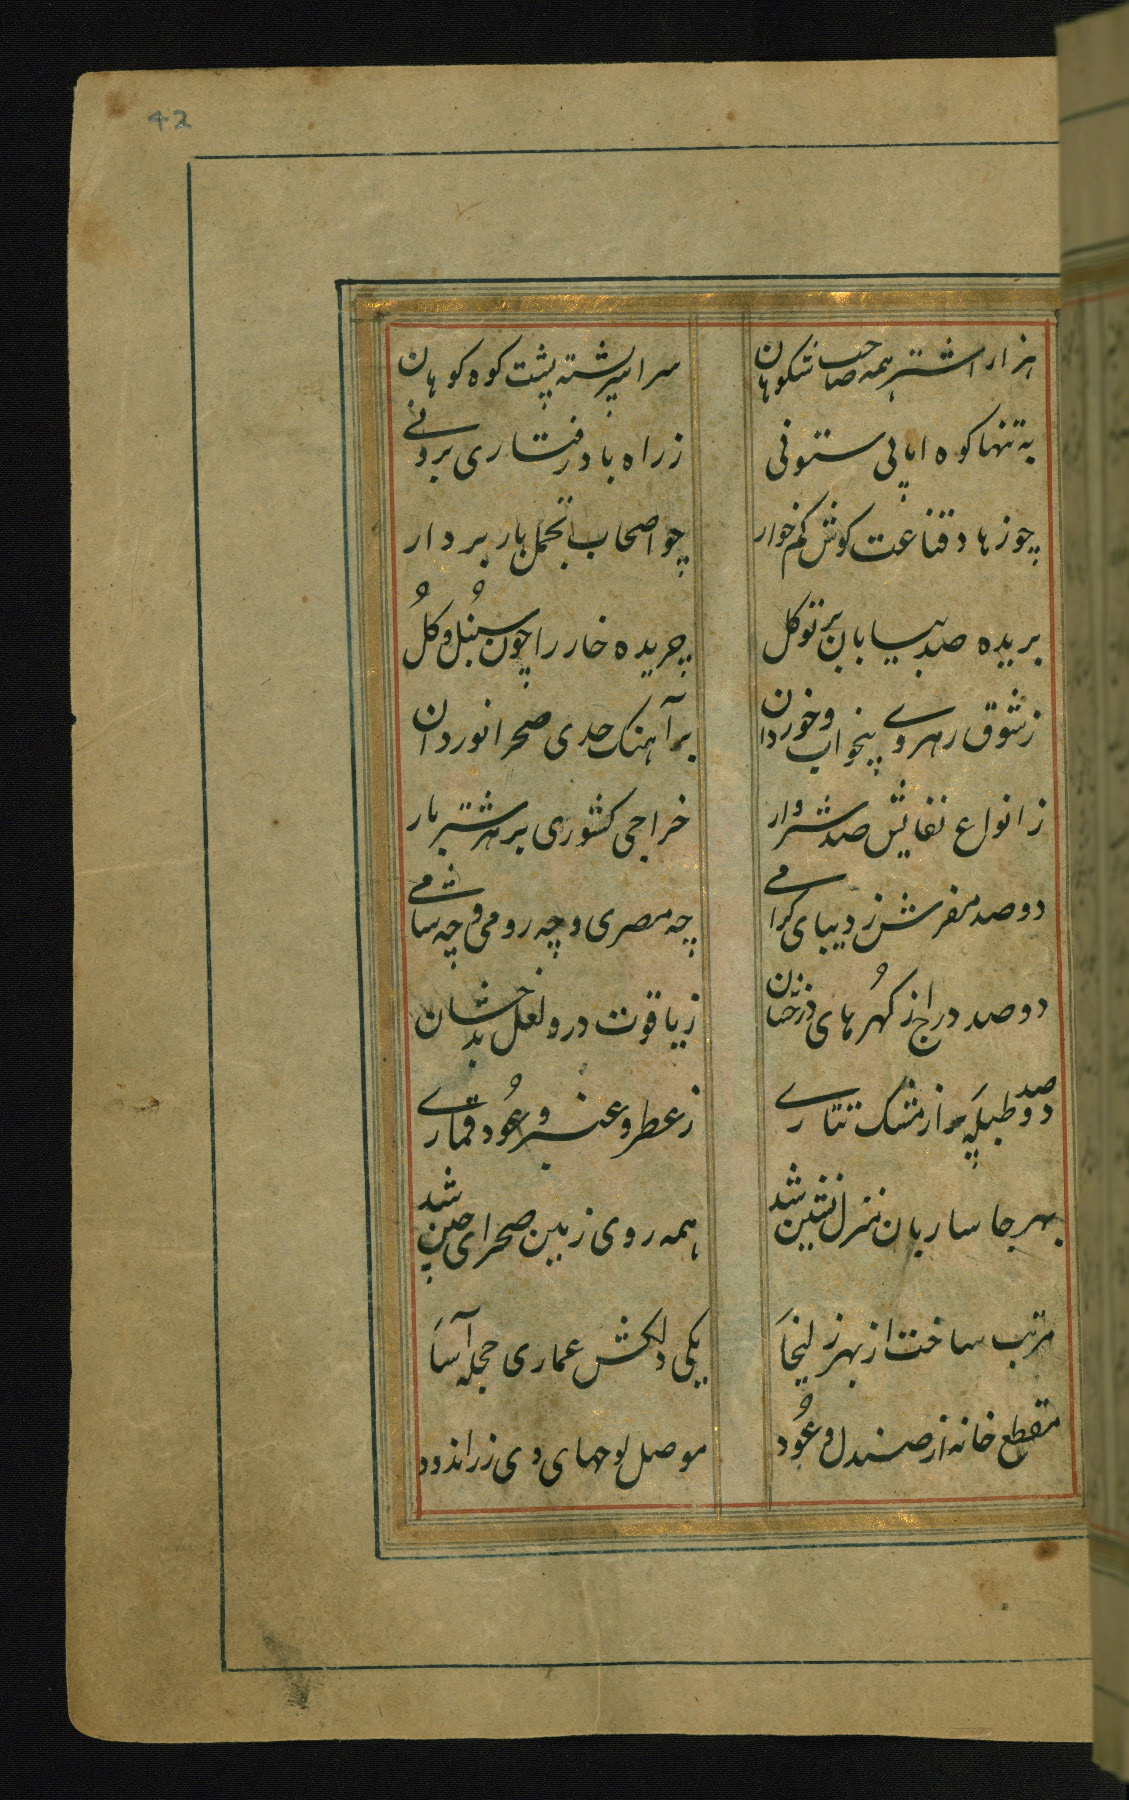 42
هزار اشتر همه صاحب شکوهان
سراسر پشته پشت کوه کوهان
به تنها کوه اما بی ستونی
ز راه باد رفتاری برونی
چو زهاد قناعت کوش کم خوار
چو اصحاب تحمل بار بردار
بریده صد بیابان بر توکل
چریده خار را چون سنبل و گل
ز شوق رهروی بیخواب و خوردان
بر آهنک حدی صحرا نوردان
ز انواع نفائیش صد شتروار
خراجی کشوری بر هر شتر بار
دو صد مفرش ز دیبای کرامی
چه مصری و چه رومی و چه شامی
دو صد درج از کهرهای درخشان
ز یاقوت در و لعل بدخشان
دو صد طبله پر از مشک تتاری
ز عطر و عنبر و عود قماری
بهر جا ساربان منزل نشین شد
همه روی زمین صحرای چین شد
مرتب ساخت از بهر زلیخا
یکی دلکش عماری حجله آسا
مقطع خانه از صندل و عود
موصل لوحهای وی زراندود